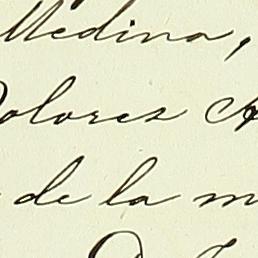 Medina,
Dolores
de la